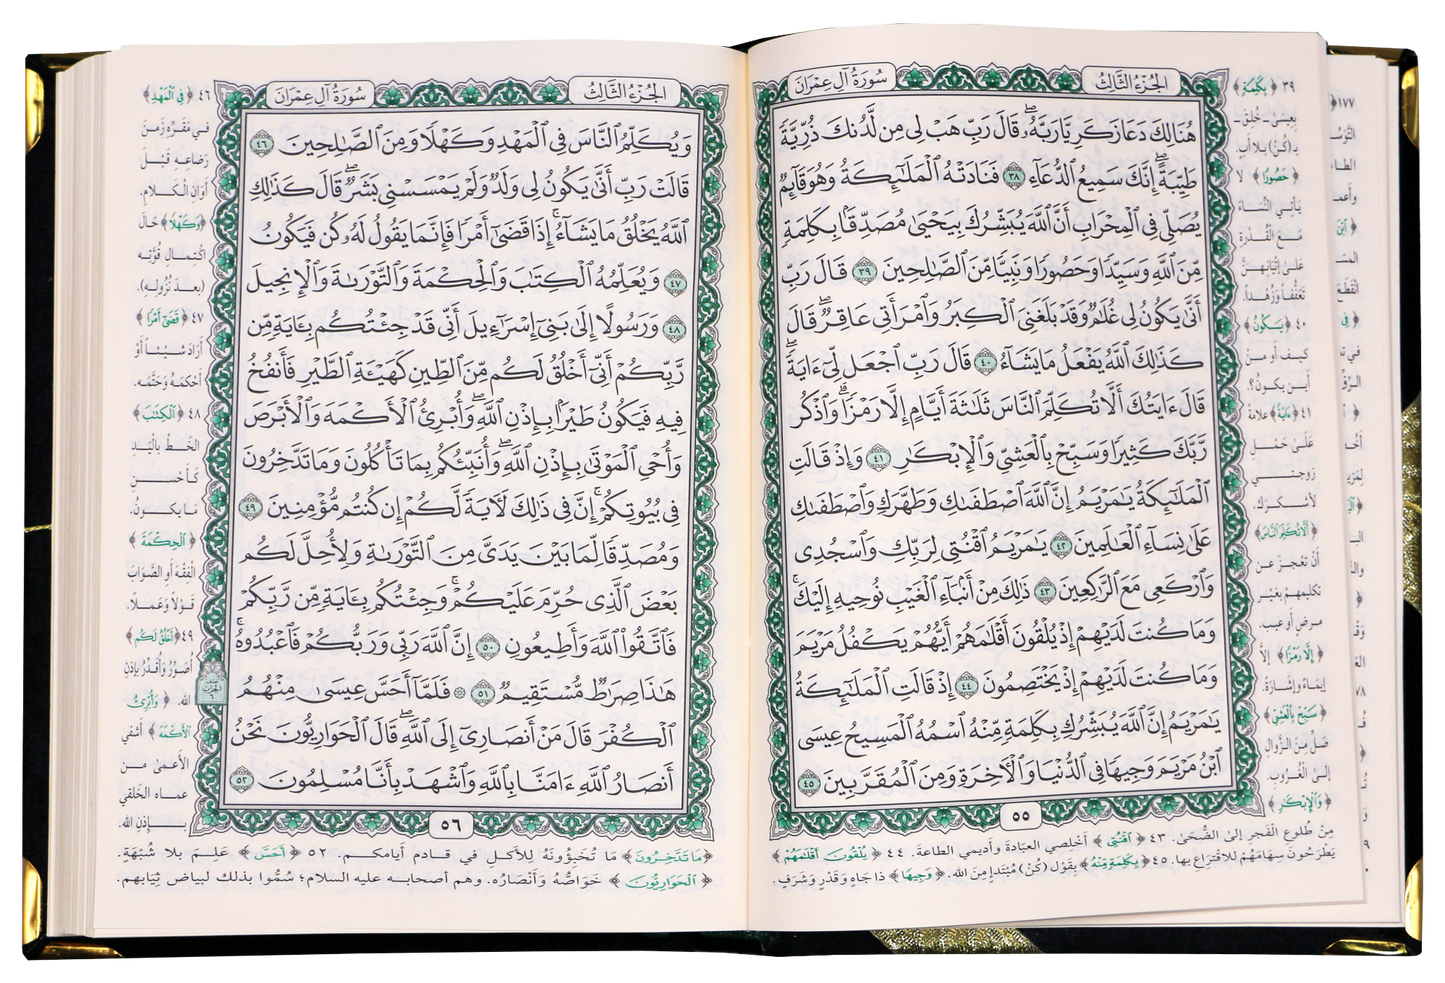 الجزء الثالث
سورة آل عمران
هُنَالِكَ دَعَا زَكَرِيَّا رَبَّهُۥۖ قَالَ رَبِّ هَبْ لِى مِن لَّدُنكَ ذُرِّيَّةً
طَيِّبَةًۖ إِنَّكَ سَمِيعُ ٱلدُّعَآءِ ٣٨ فَنَادَتْهُ ٱلْمَلَٰٓئِكَةُ وَهُوَ قَآئِمٌ
يُصَلِّى فِى ٱلْمِحْرَابِ أَنَّ ٱللَّهَ يُبَشِّرُكَ بِيَحْيَىٰ مُصَدِّقًۢا بِكَلِمَةٍ
مِّنَ ٱللَّهِ وَسَيِّدًا وَحَصُورًا وَنَبِيًّا مِّنَ ٱلصَّٰلِحِينَ ٣٩ قَالَ رَبِّ
أَنَّىٰ يَكُونُ لِى غُلَٰمٌ وَقَدْ بَلَغَنِىَ ٱلْكِبَرُ وَٱمْرَأَتِى عَاقِرٌۖ قَالَ
كَذَٰلِكَ ٱللَّهُ يَفْعَلُ مَا يَشَآءُ ٤٠ قَالَ رَبِّ ٱجْعَل لِّىٓ ءَايَةًۖ
قَالَ ءَايَتُكَ أَلَّا تُكَلِّمَ ٱلنَّاسَ ثَلَٰثَةَ أَيَّامٍ إِلَّا رَمْزًاۗ وَٱذْكُر
رَّبَّكَ كَثِيرًا وَسَبِّحْ بِٱلْعَشِىِّ وَٱلْإِبْكَٰرِ ٤١ وَإِذْ قَالَتِ
ٱلْمَلَٰٓئِكَةُ يَٰمَرْيَمُ إِنَّ ٱللَّهَ ٱصْطَفَىٰكِ وَطَهَّرَكِ وَٱصْطَفَىٰكِ
عَلَىٰ نِسَآءِ ٱلْعَٰلَمِينَ ٤٢ يَٰمَرْيَمُ ٱقْنُتِى لِرَبِّكِ وَٱسْجُدِى
وَٱرْكَعِى مَعَ ٱلرَّٰكِعِينَ ٤٣ ذَٰلِكَ مِنْ أَنۢبَآءِ ٱلْغَيْبِ نُوحِيهِ إِلَيْكَۚ
وَمَا كُنتَ لَدَيْهِمْ إِذْ يُلْقُونَ أَقْلَٰمَهُمْ أَيُّهُمْ يَكْفُلُ مَرْيَمَ
وَمَا كُنتَ لَدَيْهِمْ إِذْ يَخْتَصِمُونَ ٤٤ إِذْ قَالَتِ ٱلْمَلَٰٓئِكَةُ
يَٰمَرْيَمُ إِنَّ ٱللَّهَ يُبَشِّرُكِ بِكَلِمَةٍ مِّنْهُ ٱسْمُهُ ٱلْمَسِيحُ عِيسَى
ٱبْنُ مَرْيَمَ وَجِيهًا فِى ٱلدُّنْيَا وَٱلْءَاخِرَةِ وَمِنَ ٱلْمُقَرَّبِينَ ٤٥
٥٥
٣٩ ﴿بكلمة﴾
بعيسى ـ خُلِقَ ـ
بـ (كُنْ) بلا أبٍ.
﴿حصورًا﴾ لا
يأتي النِّساءَ
مَعَ القُدْرَةِ
على إتْيَانِهِنَّ
تَعَفُّفاً وَزُهْداً.
٤٠ ﴿يكون﴾
كيف أو من
أين يكونُ؟.
٤١ ﴿ءاية﴾ علامةً
عَلَى حَمْلِ
زوجتي
لأشكُرَكَ.
﴿ألا تكلم الناس﴾
أنْ تعْجزَ عن
تكليمهم بغير
مرضٍ أو عيب.
﴿إلا رمزا﴾ إلَّا
إيماءً وإشارةً.
﴿سبح بالعشي﴾
صَلِّ مِنَ الزَّوال
إلى الغُروبِ.
﴿والإبكار﴾
مِنْ طُلوعِ الفجرِ إلى الضُّحَى. ٤٣ ﴿اقنتي﴾ أخلِصي العبَادةَ وأديمي الطاعةَ. ٤٤ ﴿يلقون أقلامهم﴾
يَطرَحُونَ سِهَامَهُمْ للاقتِرَاعِ بها. ٤٥ ﴿بكلمة منه﴾ بقَوْل (كُنْ) مُبْتَدإٍ مِنَ الله. ﴿وجيها﴾ ذا جَاهٍ وَقَدْرٍ وشَرَفٍ.
الجزء الثالث
سورة آل عمران
وَيُكَلِّمُ ٱلنَّاسَ فِى ٱلْمَهْدِ وَكَهْلًا وَمِنَ ٱلصَّٰلِحِينَ ٤٦
قَالَتْ رَبِّ أَنَّىٰ يَكُونُ لِى وَلَدٌ وَلَمْ يَمْسَسْنِى بَشَرٌۖ قَالَ كَذَٰلِكِ
ٱللَّهُ يَخْلُقُ مَا يَشَآءُۚ إِذَا قَضَىٰٓ أَمْرًا فَإِنَّمَا يَقُولُ لَهُۥ كُن فَيَكُونُ
٤٧ وَيُعَلِّمُهُ ٱلْكِتَٰبَ وَٱلْحِكْمَةَ وَٱلتَّوْرَىٰةَ وَٱلْإِنجِيلَ
٤٨ وَرَسُولًا إِلَىٰ بَنِىٓ إِسْرَٰٓءِيلَ أَنِّى قَدْ جِئْتُكُم بِـَٔايَةٍ مِّن
رَّبِّكُمْ أَنِّىٓ أَخْلُقُ لَكُم مِّنَ ٱلطِّينِ كَهَيْـَٔةِ ٱلطَّيْرِ فَأَنفُخُ
فِيهِ فَيَكُونُ طَيْرًۢا بِإِذْنِ ٱللَّهِۖ وَأُبْرِئُ ٱلْأَكْمَهَ وَٱلْأَبْرَصَ
وَأُحْىِ ٱلْمَوْتَىٰ بِإِذْنِ ٱللَّهِۖ وَأُنَبِّئُكُم بِمَا تَأْكُلُونَ وَمَا تَدَّخِرُونَ
فِى بُيُوتِكُمْۚ إِنَّ فِى ذَٰلِكَ لَءَايَةً لَّكُمْ إِن كُنتُم مُّؤْمِنِينَ ٤٩
وَمُصَدِّقًا لِّمَا بَيْنَ يَدَىَّ مِنَ ٱلتَّوْرَىٰةِ وَلِأُحِلَّ لَكُم
بَعْضَ ٱلَّذِى حُرِّمَ عَلَيْكُمْۚ وَجِئْتُكُم بِـَٔايَةٍ مِّن رَّبِّكُمْ
فَٱتَّقُوا۟ ٱللَّهَ وَأَطِيعُونِ ٥٠ إِنَّ ٱللَّهَ رَبِّى وَرَبُّكُمْ فَٱعْبُدُوهُۚ
هَٰذَا صِرَٰطٌ مُّسْتَقِيمٌ ٥١ ۞ فَلَمَّآ أَحَسَّ عِيسَىٰ مِنْهُمُ
ٱلْكُفْرَ قَالَ مَنْ أَنصَارِىٓ إِلَى ٱللَّهِۖ قَالَ ٱلْحَوَارِيُّونَ نَحْنُ
أَنصَارُ ٱللَّهِ ءَامَنَّا بِٱللَّهِ وَٱشْهَدْ بِأَنَّا مُسْلِمُونَ ٥٢
٥٦
الحزب ٦
٤٦ ﴿في المهد﴾
في مَقَرِّهِ زَمَنَ
رَضاعهِ قَبْلَ
أوَانِ الْكَلامِ.
﴿وكهلا﴾ حَالَ
اكْتِمالِ قُوَّتِه
(بعدَ نُزُولِهِ).
٤٧ ﴿قضى أمرا﴾
أرَادَ شَيْئاً أوْ
أحْكَمَهُ وَحَتَّمَه.
٤٨ ﴿الكتاب﴾
الْخَطَّ بِالْيَدِ
كَأحْسَنِ
مَا يكونُ.
﴿الحكمة﴾
الْفِقْهَ أو الصَّوَابَ
قَوْلاً وَعَمَلاً.
٤٩ ﴿أخلق لكم﴾
أُصَوِّرُ وَأقَدِّرُ بإذنِ
الله. ﴿وأبرئ
الأكمه﴾ أشْفي
الأعمىٰ من
عماه الخَلقي
بـإذن الله.
﴿ما تدخرون﴾ مَا تُخَبِّؤُونَهُ لِلأكلِ في قادم أيامكم. ٥٢ ﴿أحس﴾ عَلِمَ بلا شُبْهَةٍ.
﴿الحواريون﴾ خَوَاصُّهُ وَأنْصَارُه. وهم أصحابه عليه السلام؛ سُمُّوا بذلك لبياض ثِيَابهم.